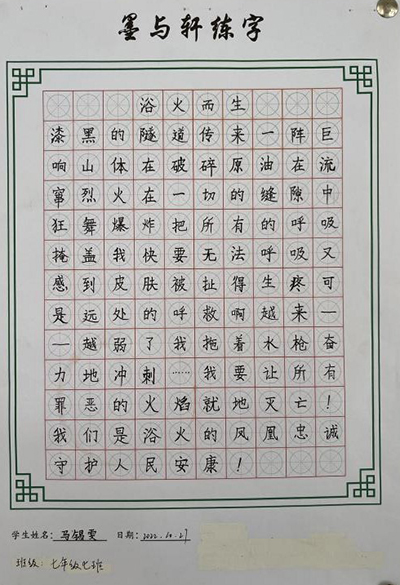 墨与轩练字
浴火而生
漆黑的隧道传来一阵巨
响山体在破碎原油在流
窜烈火在一切的缝隙中
狂舞爆炸把所有的呼吸
掩盖我快要无法呼吸又
感到皮肤被扯得生疼可
是远处的呼救啊越来一
一越弱了我拖着水枪奋
力地冲刺……我要让所有
罪恶的火焰就地灭亡！
我们是浴火的凤凰忠诚
守护人民安康！
学生姓名：马锡雯 日期：2022.10.27
班级：七年级七班